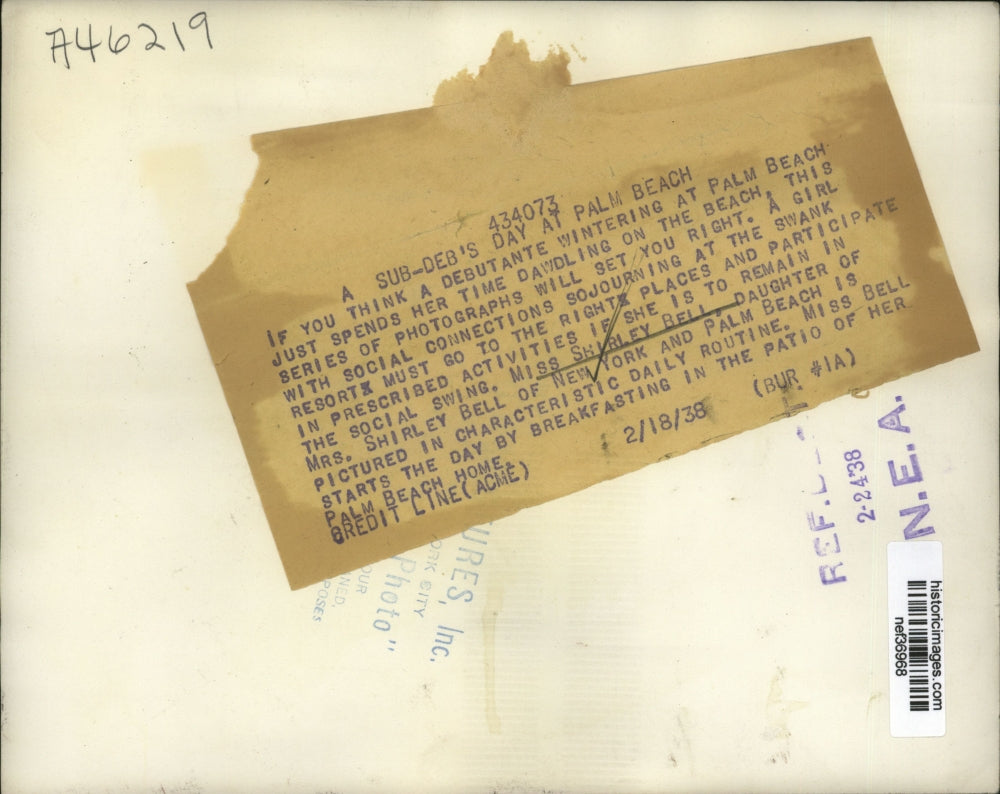 A46219
434073
A SUB-DEB'S DAY AT PALM BEACH
IF YOU THINK A DEBUTANTE WINTERING AT PALM BEACH
JUST SPENDS HER TIME DAWDLING ON THE BEACH, THIS
SERIES OF PHOTOGRAPHS WILL SET YOU RIGHT. A GIRL
WITH SOCIAL CONNECTIONS SOJOURNING AT THE SWANK
RESORTX MUST GO TO THE RIGHTX PLACES AND PARTICIPATE
IN PRESCRIBED ACTIVITIES IF SHE IS TO REMAIN IN
THE SOCIAL SWING. MISS SHIRLEY BELL, DAUGHTER OF
MRS. SHIRLEY BELL OF NEW YORK AND PALM BEACH IS
PICTURED IN CHARACTERISTIC DAILY ROUTINE. MISS BELL
STARTS THE DAY BY BREAKFASTING IN THE PATIO OF HER
PALM BEACH HOME.
CREDIT LINE(ACME) 2/18/38 (BUR. #1A)
URES, Inc.
ORK CITY
Photo"
OUR
NED
POSES
REF.
2-24-38
N.E.A.
historicimages.com
nef36968